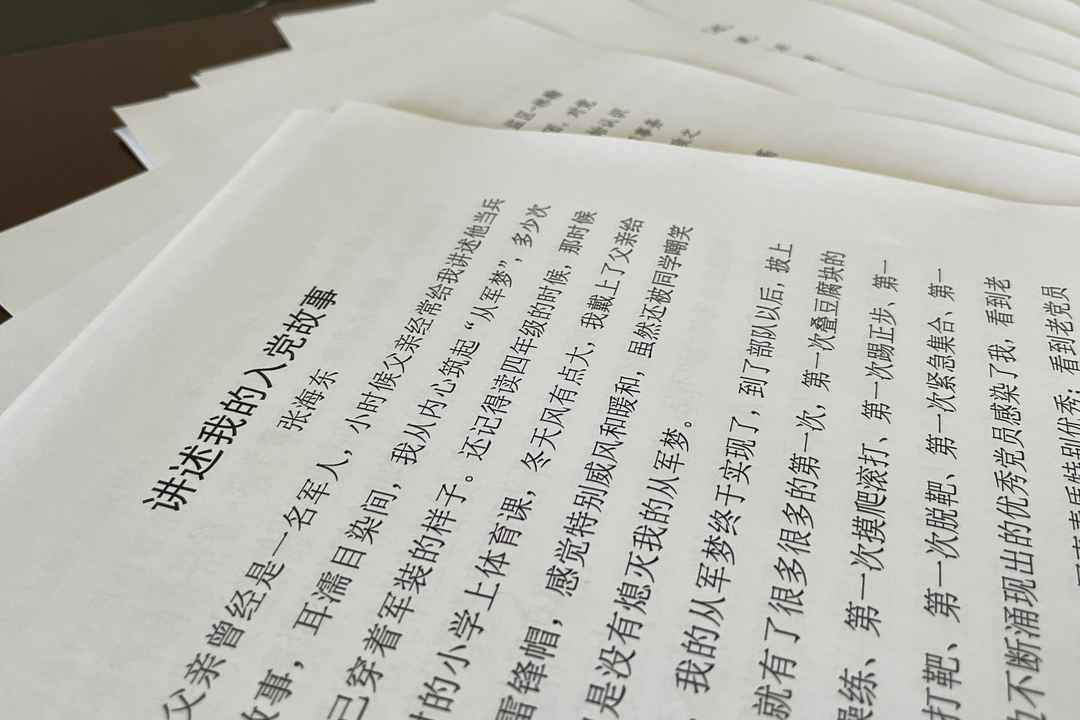 讲述我的入党故事
张海东
父亲曾经是一名军人，小时候父亲经常给我讲述他当兵
故事，耳濡目染间，我从内心筑起“从军梦”，多少次
己穿着军装的样子。还记得读四年级的时候，那时候
时的小学上体育课，冬天风有点大，我戴上了父亲给
雷锋帽，感觉特别威风和暖和，虽然还被同学嘲笑
是没有熄灭我的从军梦。
我的从军梦终于实现了，到了部队以后，披上
就有了很多很多的第一次，第一次叠豆腐块的
操练、第一次摸爬滚打、第一次踢正步、第一
打靶、第一次脱靶、第一次紧急集合、第一
不断涌现出的优秀党员感染了我，看到老
特别优秀；看到老党员